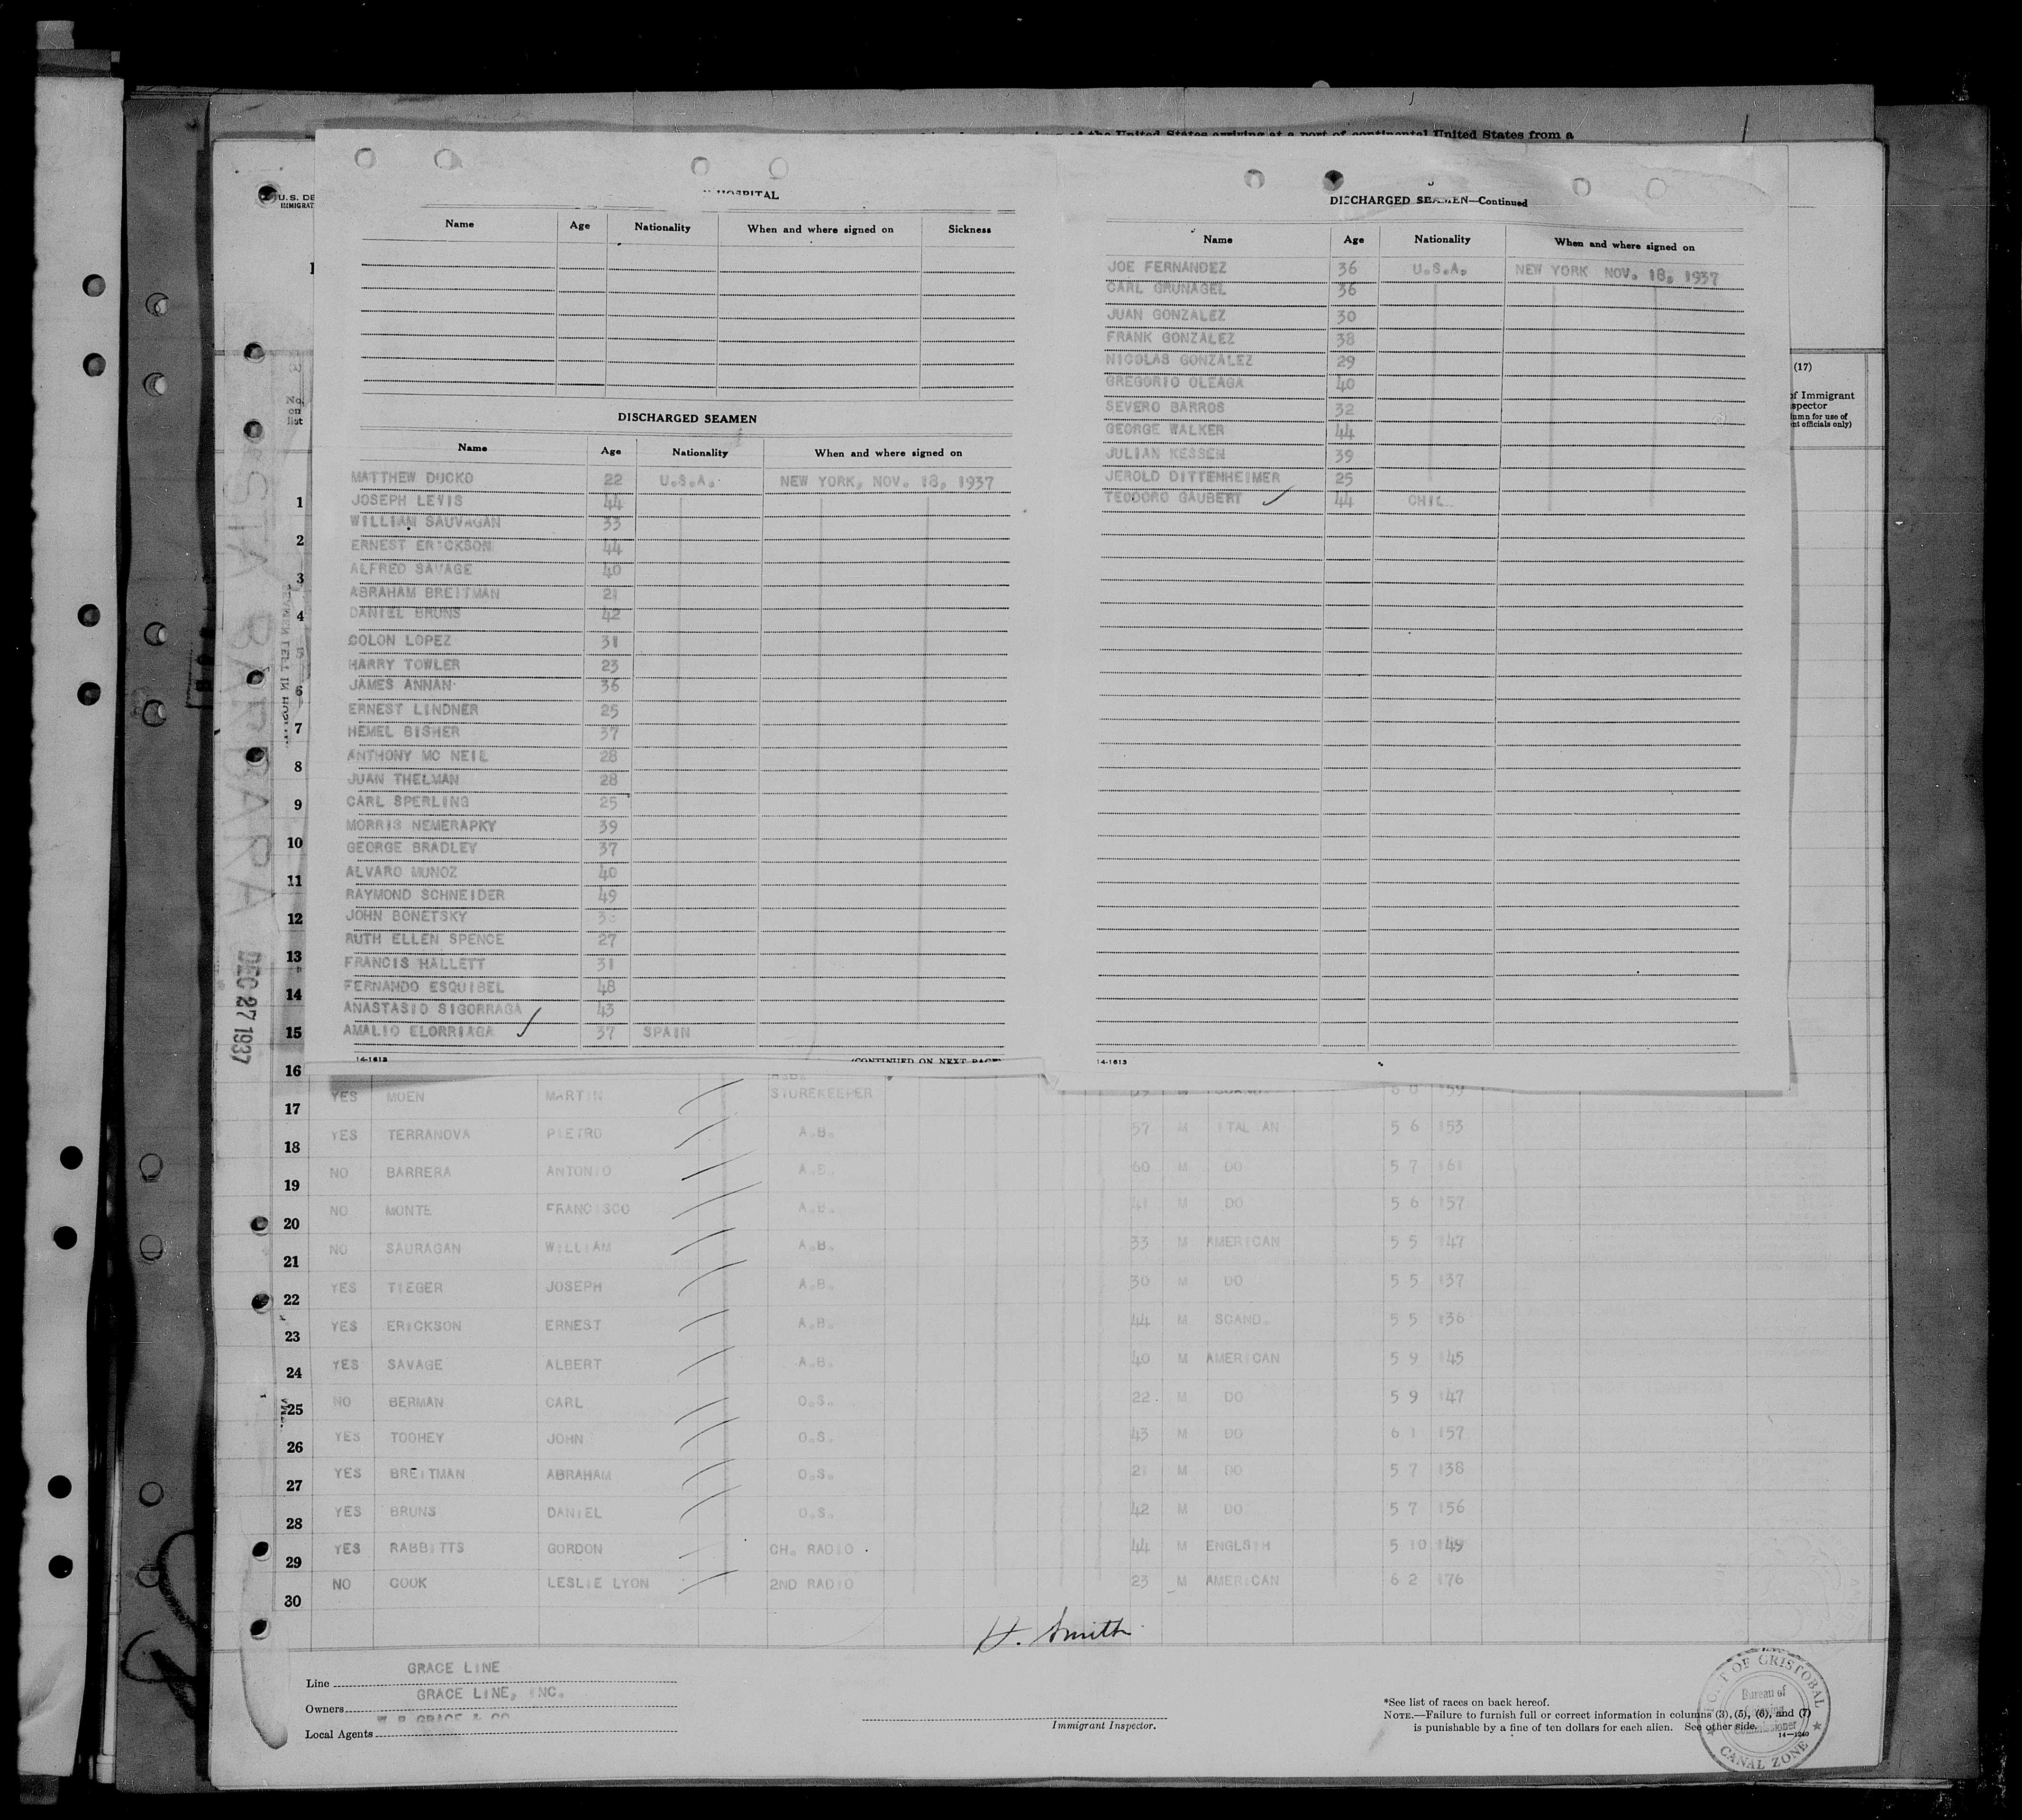 of the United States arriving at a port of continental United States from a
U.S. DE
IMMIGRAT
HOSPITAL
Name Age Nationality When and where signed on Sickness
DISCHARGED SEAMEN
Name Age Nationality When and where signed on
MATTHEW DUCKO 22 U.S.A. NEW YORK, NOV. 18, 1937
JOSEPH LEVIS 44
WILLIAM SAUVAGAN 33
ERNEST ERICKSON 44
ALFRED SAVAGE 40
ABRAHAM BREITMAN 21
DANIEL BRUNS 42
COLON LOPEZ 31
HARRY TOWLER 23
JAMES ANNAN 36
ERNEST LINDNER 25
HEMEL BISHER 37
ANTHONY MC NEIL 28
JUAN THELMAN 28
CARL SPERLING 25
MORRIS NEMERAPKY 39
GEORGE BRADLEY 37
ALVARO MUNOZ 40
RAYMOND SCHNEIDER 49
JOHN BONETSKY
RUTH ELLEN SPENCE 27
FRANCIS HALLETT 31
FERNANDO ESQUIBEL 48
ANASTASIO SIGORRAGA 43
AMALIO ELORRIAGA 37 SPAIN
14-1613 (CONTINUED ON NEXT PAGE)
DISCHARGED SEAMEN—Continued
Name Age Nationality When and where signed on
JOE FERNANDEZ 36 U.S.A. NEW YORK NOV. 18, 1937
CARL GRUNAGEL 36
JUAN GONZALEZ 30
FRANK GONZALEZ 38
NICOLAS GONZALEZ 29
GREGORIO OLEAGA 40
SEVERO BARROS 32
GEORGE WALKER 44
JULIAN KESSEN 39
JEROLD DITTENHEIMER 25
TEODORO GAUBERT 44 CHIL
14-1613
(17)
of Immigrant
spector
umn for use of
nt officials only)
No.
on
list
STA BARBARA DEC 27 1937
SEAMEN LEFT IN HOSPITAL
1
2
3
4
5
6
7
8
9
10
11
12
13
14
15
16
17 YES MOEN MARTIN STOREKEEPER
18 YES TERRANOVA PIETRO A.B. 57 M ITAL AN 5 6 153
19 NO BARRERA ANTONIO A.B. 60 M DO 5 7 161
20 NO MONTE FRANCISCO A.B. 41 M DO 5 6 157
21 NO SAURAGAN WILLIAM A.B. 33 M AMERICAN 5 5 147
22 YES TIEGER JOSEPH A.B. 30 M DO 5 5 137
23 YES ERICKSON ERNEST A.B. 44 M SCAND. 5 5 136
24 YES SAVAGE ALBERT A.B. 40 M AMERICAN 5 9 145
25 NO BERMAN CARL O.S. 22 M DO 5 9 147
26 YES TOOHEY JOHN O.S. 43 M DO 6 1 157
27 YES BREITMAN ABRAHAM O.S. 21 M DO 5 7 138
28 YES BRUNS DANIEL O.S. 42 M DO 5 7 156
29 YES RABBITTS GORDON CH. RADIO 44 M ENGLSIH 5 10 149
30 NO COOK LESLIE LYON 2ND RADIO 23 M AMERICAN 6 2 176
H. Smith
Line GRACE LINE
Owners GRACE LINE, INC.
Local Agents W R GRACE & CO
Immigrant Inspector.
*See list of races on back hereof.
NOTE.—Failure to furnish full or correct information in columns (3), (5), (6), and (7)
is punishable by a fine of ten dollars for each alien. See other side.
14—1240
PORT OF CRISTOBAL
Bureau of
CANAL ZONE